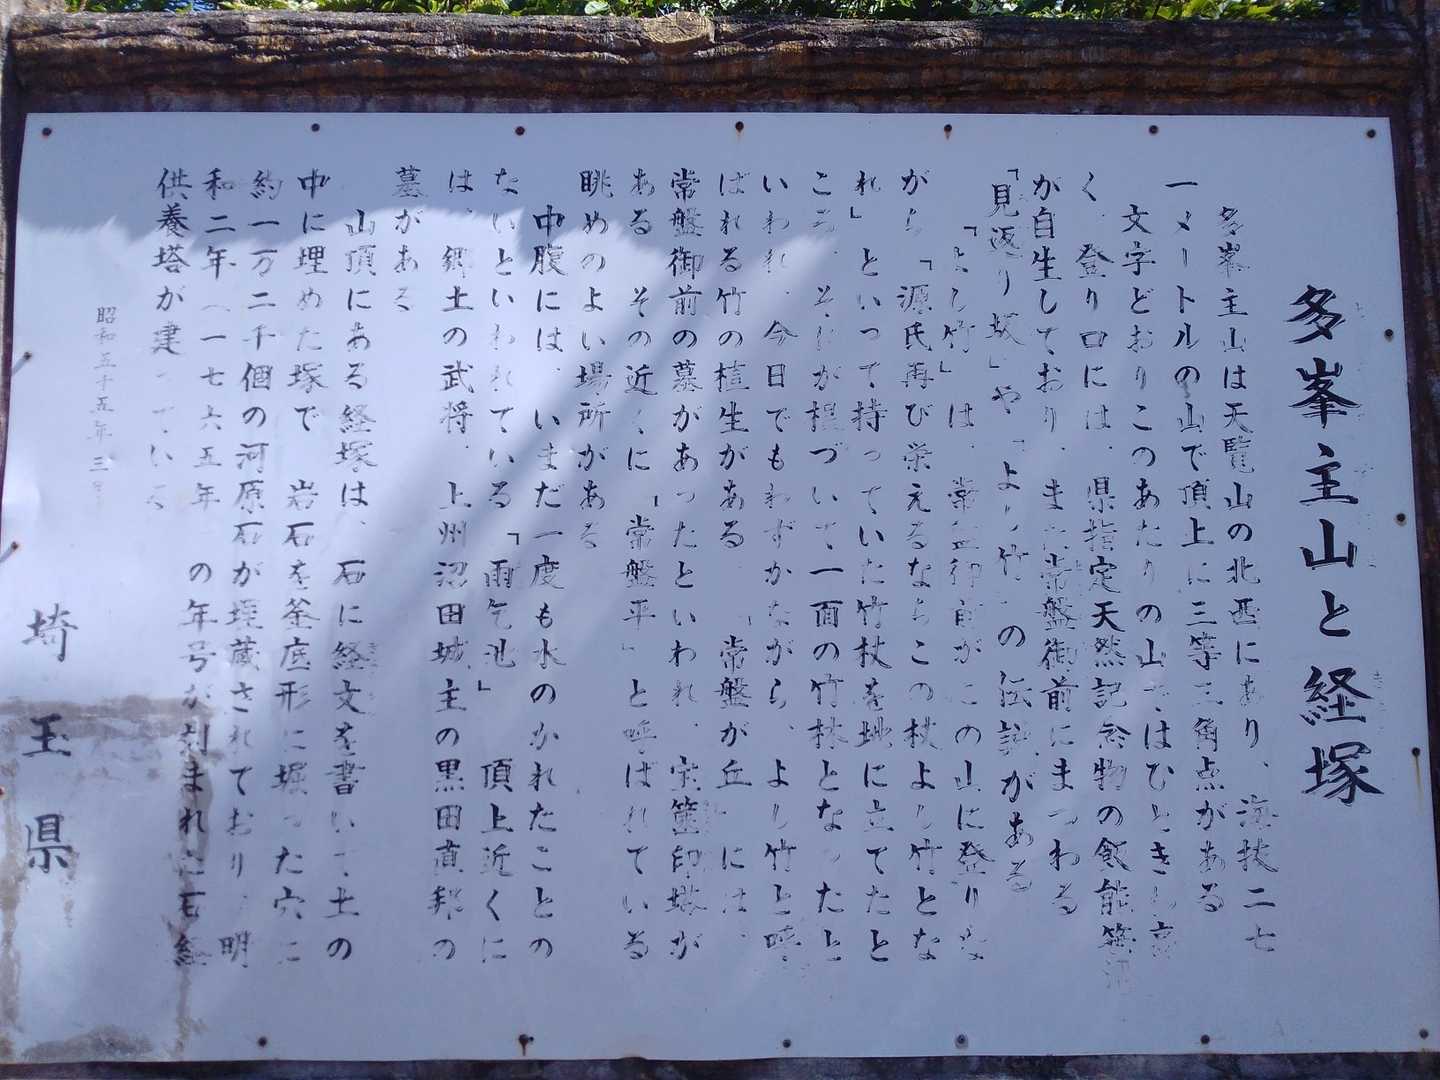 多峯主山と経塚
多峯主山は天覧山の北西にあり、海抜二七
一メートルの山で頂上に三等三角点がある
文字どおりこのあたりの山ではひときわ高
く、登り口には、県指定天然記念物の飯能笹
が自生しており、また常盤御前にまつわる
「見返り坂」や「よし竹」の伝説がある
「よし竹」は、常盤御前がこの山に登りな
がら「源氏再び栄えるならこの杖よし竹とな
れ」といって持っていた竹杖を地に立てたと
ころ、それが根づいて一面の竹林となったと
いわれ、今日でもわずかながら、よし竹と呼
ばれる竹の植生がある 「常盤が丘」には、
常盤御前の墓があったといわれ、宝篋印塔が
ある その近くに「常盤平」と呼ばれている
眺めのよい場所がある
中腹には、いまだ一度も水のかれたことの
ないといわれている「雨乞池」 頂上近くに
は、郷土の武将、上州沼田城主の黒田直邦の
墓がある
山頂にある経塚は、石に経文を書いて土の
中に埋めた塚で 岩石を釜底形に堀った穴に
約一万二千個の河原石が埋蔵されており、明
和二年(一七六五年 の年号が刻まれた石経
供養塔が建っている
昭和五十五年三月
埼玉県